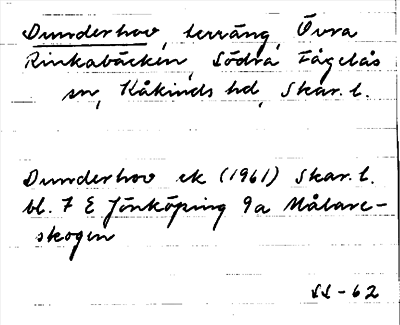 Dunderhov, terräng, Övra
Rinkabäcken, Södra Fågelås
sn, Kåkinds hd, Skar. l.
Dunderhov ek (1961) Skar. l.
bl. 7 E Jönköping 9a Målare-
skogen
SS-62